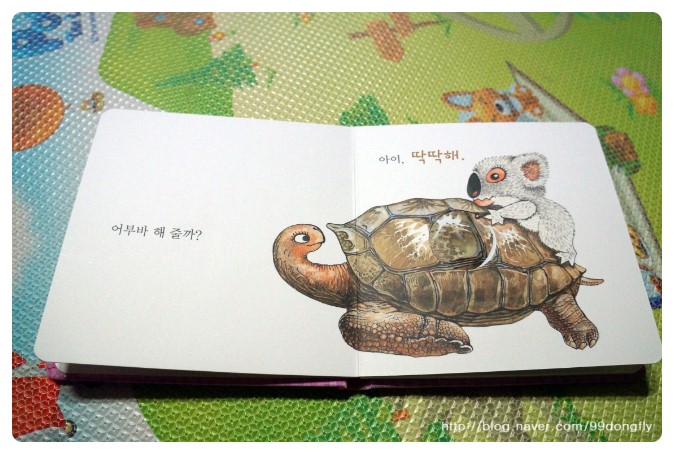 어부바 해 줄까?
아이, 딱딱해.
http://blog.naver.com/99dongfly